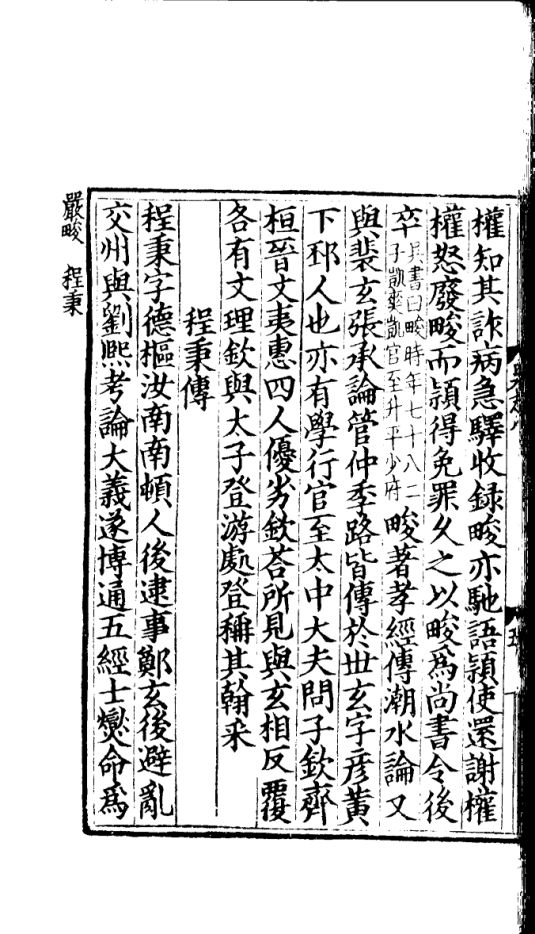 權知其詐病急驛收錄畯亦馳語潁使還謝權
權怒廢畯而潁得免罪久之以畯為尚書令後
卒吳書曰畯時年七十八二
子凱爽凱官至升平少府
畯著孝經傳潮水論又
與裴玄張承論管仲季路皆傳於世玄字彥黃
下邳人也亦有學行官至太中大夫問子欽齊
桓晉文夷惠四人優劣欽荅所見與玄相反覆
各有文理欽與太子登游處登稱其翰采
程秉傳
程秉字德樞汝南南頓人後逮事鄭玄後避亂
交州與劉熈考論大義遂博通五經士爕命爲
嚴畯 程秉